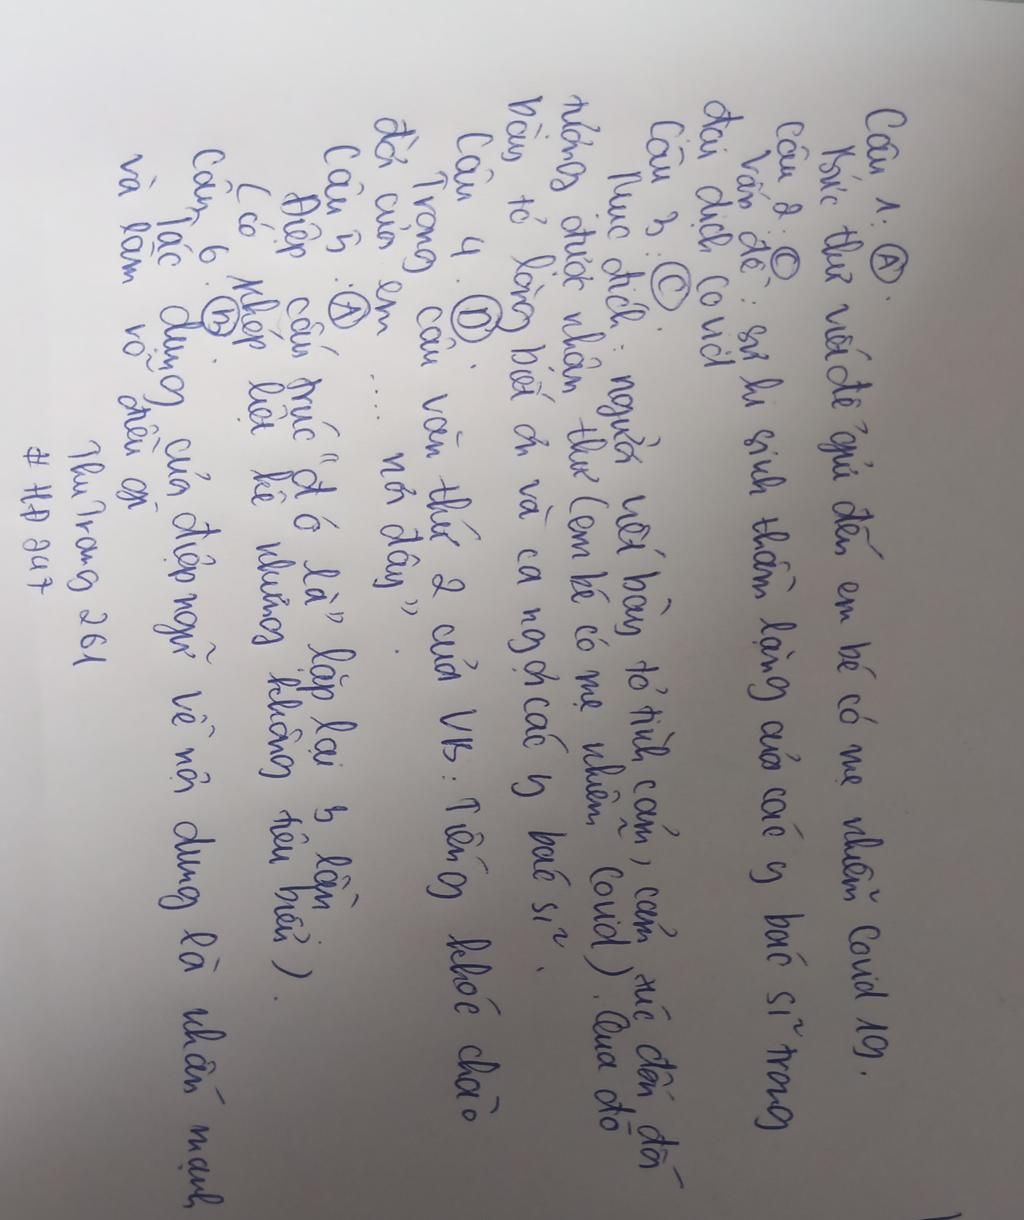 Câu 1. A.
Bức thư viết để gửi đến em bé có mẹ nhiễm Covid 19.
Câu 2. C
Vấn đề: sự hi sinh thầm lặng của các y bác sĩ trong
đại dịch Covid
Câu 3: C.
Mục đích: người viết bày tỏ tình cảm, cảm xúc đến đối
tượng được nhận thư (em bé có mẹ nhiễm Covid). Qua đó
bày tỏ lòng biết ơn và ca ngợi các y bác sĩ.
Câu 4. D.
Trong câu văn thứ 2 của VB: Tiếng khóc chào
đời của em .... nơi đây".
Câu 5. A
Điệp cấu trúc "đó là" lặp lại 3 lần.
(Có phép liệt kê nhưng không tiêu biểu).
Câu 6. B.
Tác dụng của điệp ngữ về nội dung là nhấn mạnh
và làm rõ điều gì
Thu Trang 261
# HĐ 247